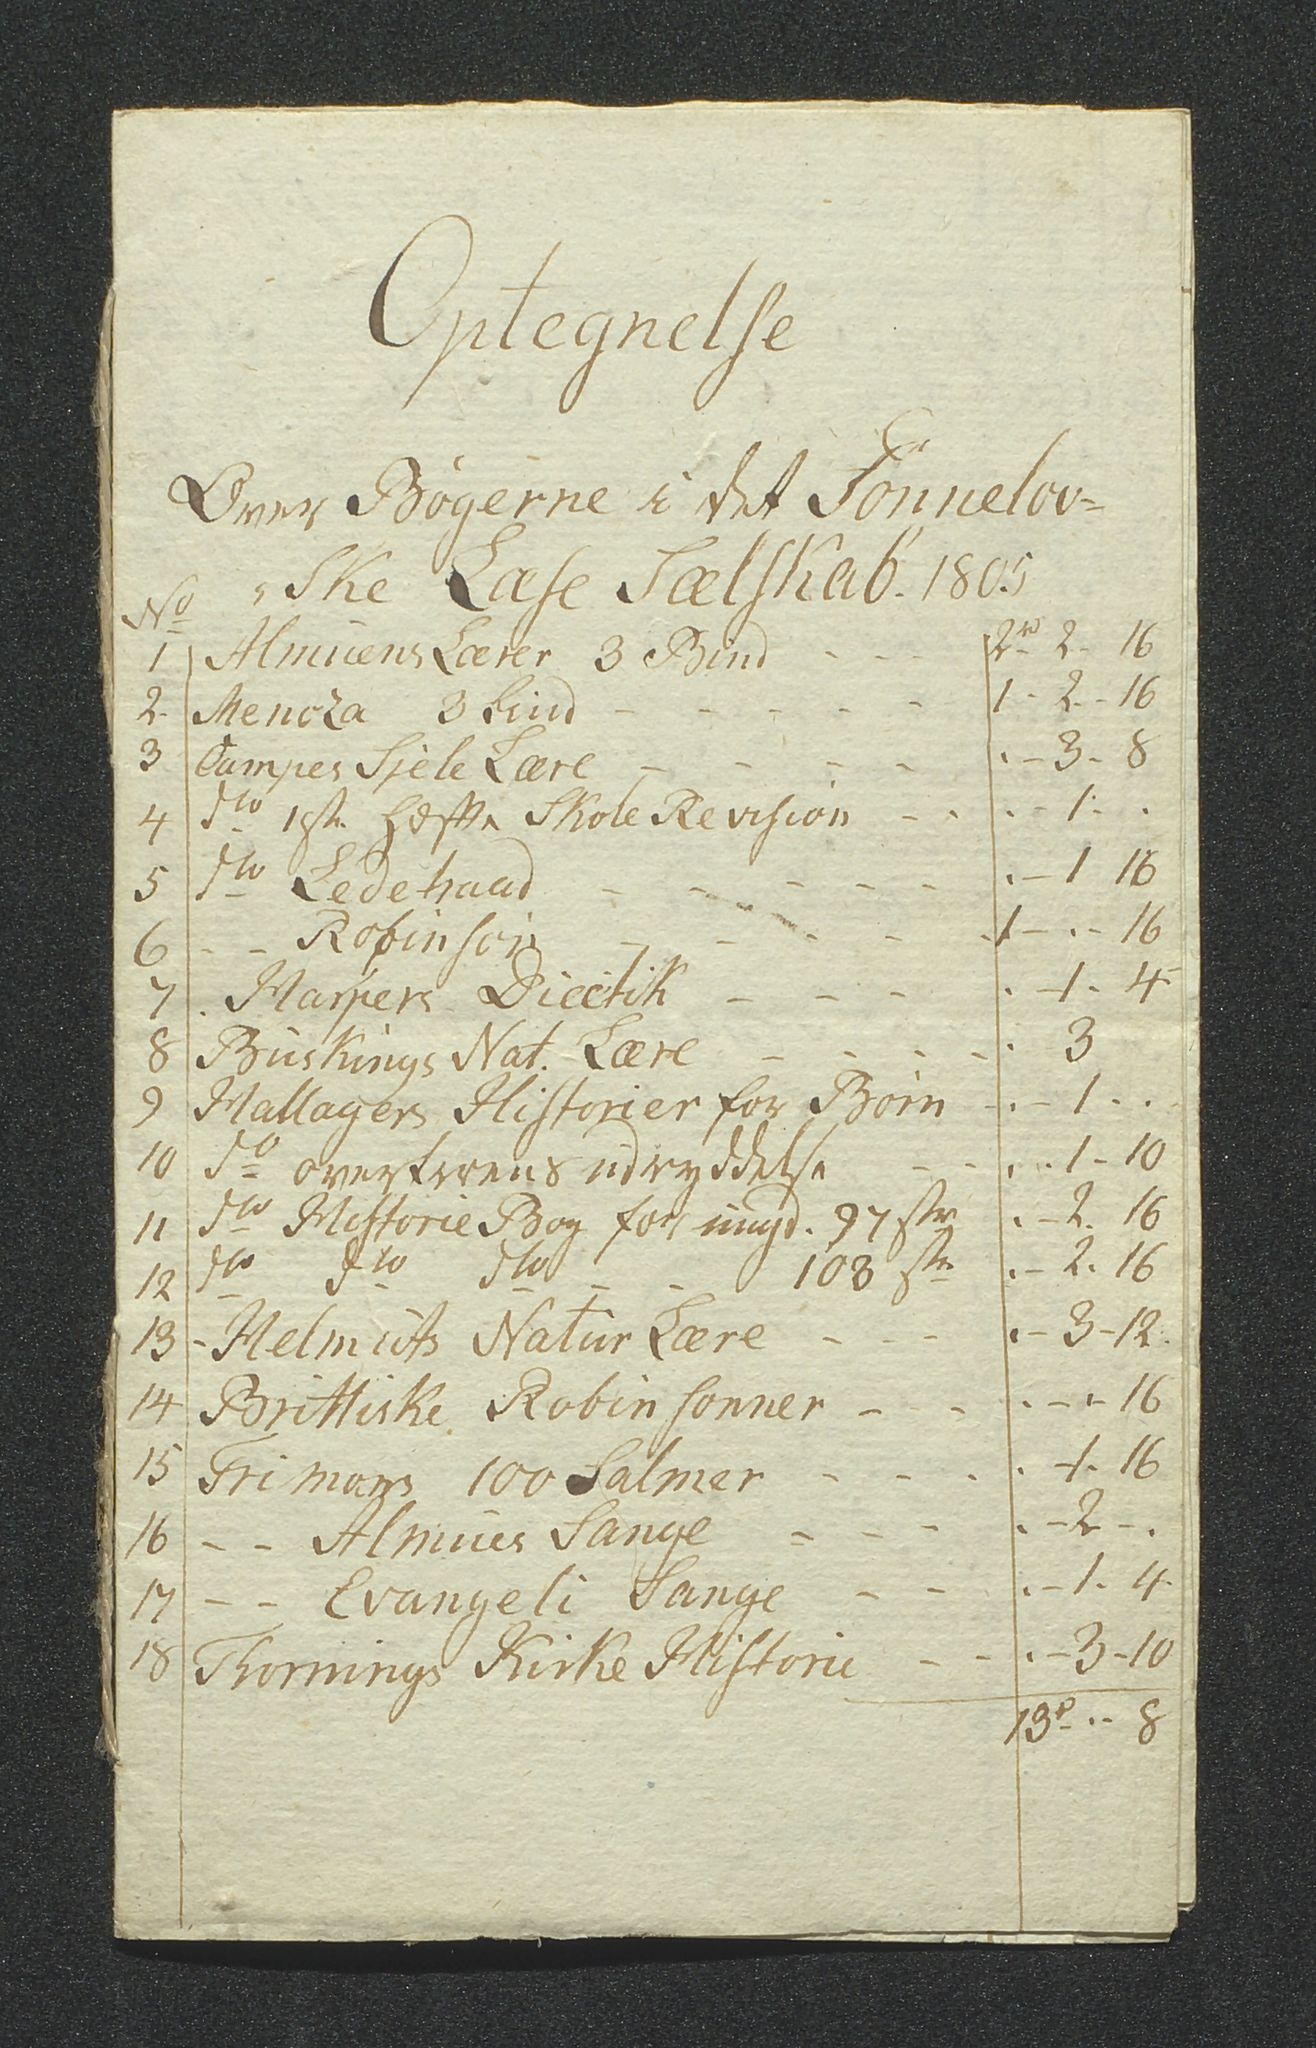 Optegnelse
Over Bøgerne i det Tönnelov-
ske Læse Sælskab. 1805
No
1 Almuens Lærer 3 Bind - - 2rd 2. 16
2. Menoza 3 bind - - - - - 1 - 2 - 16
3 Campes Sjele Lære - - - - . - 3 - 8
4 dto 1ste Hefte Skole Revision - - . - 1 - .
5 dto Ledetraad - - - - - . - 1 16
6 - - Robinson - - - - 1 - . - 16
7 . Harpers Diectik - - - . - 1 - 4
8 Büskings Nat. Lære - - - - . 3
9 Hallagers Historier for Börn - . - 1 . .
10 do overtroens udryddelse - - . - 1 - 10
11 dto Historie Bog for ungd. 97 str . - 2. 16
12 dto dto dto - - 103 str . - 2. 16
13 - Helmuts Natur Lære - - - . - 3 - 12.
14 Brittiske Robinsonner - - - . - . - 16
15 Frimans 100 Salmer - - - . - 1. 16
16 - - Almues Sange - - - . - 2 - .
17 - - Evangeli Sange - - . - 1. 4
18 Thornings Kirke Historie - - . - 3 - 10
13rd - . - 8